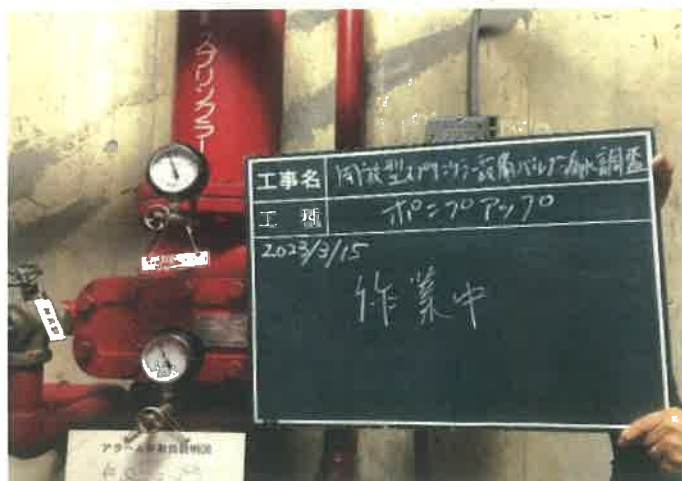 スプリンクラー
工事名 開放型スプリンクラー設備バルブ漏水調査
工種 ポンプアップ
2023/3/15
作業中
アラーム弁取扱説明図